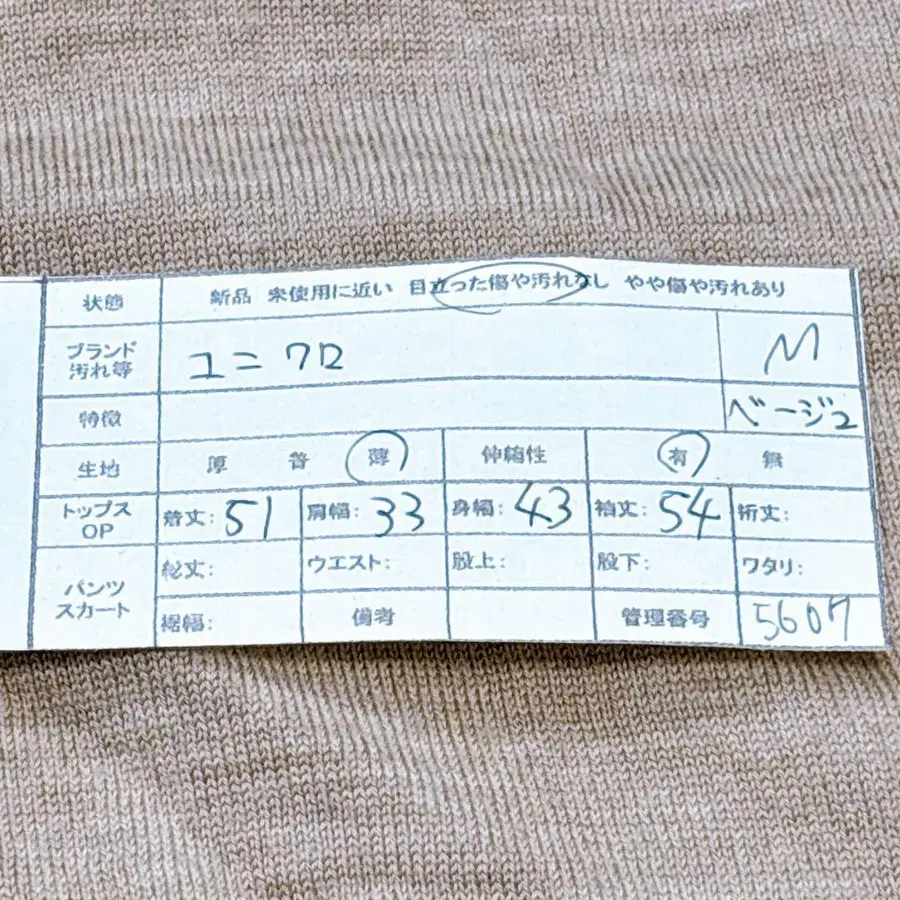 状態 新品 未使用に近い 目立った傷や汚れなし やや傷や汚れあり
ブランド 汚れ等 ユニクロ M
特徴 ベージュ
生地 厚 普 薄 伸縮性 有 無
トップス OP 着丈: 51 肩幅: 33 身幅: 43 袖丈: 54 裄丈:
パンツ スカート 総丈: ウエスト: 股上: 股下: ワタリ:
裾幅: 備考 管理番号 5607